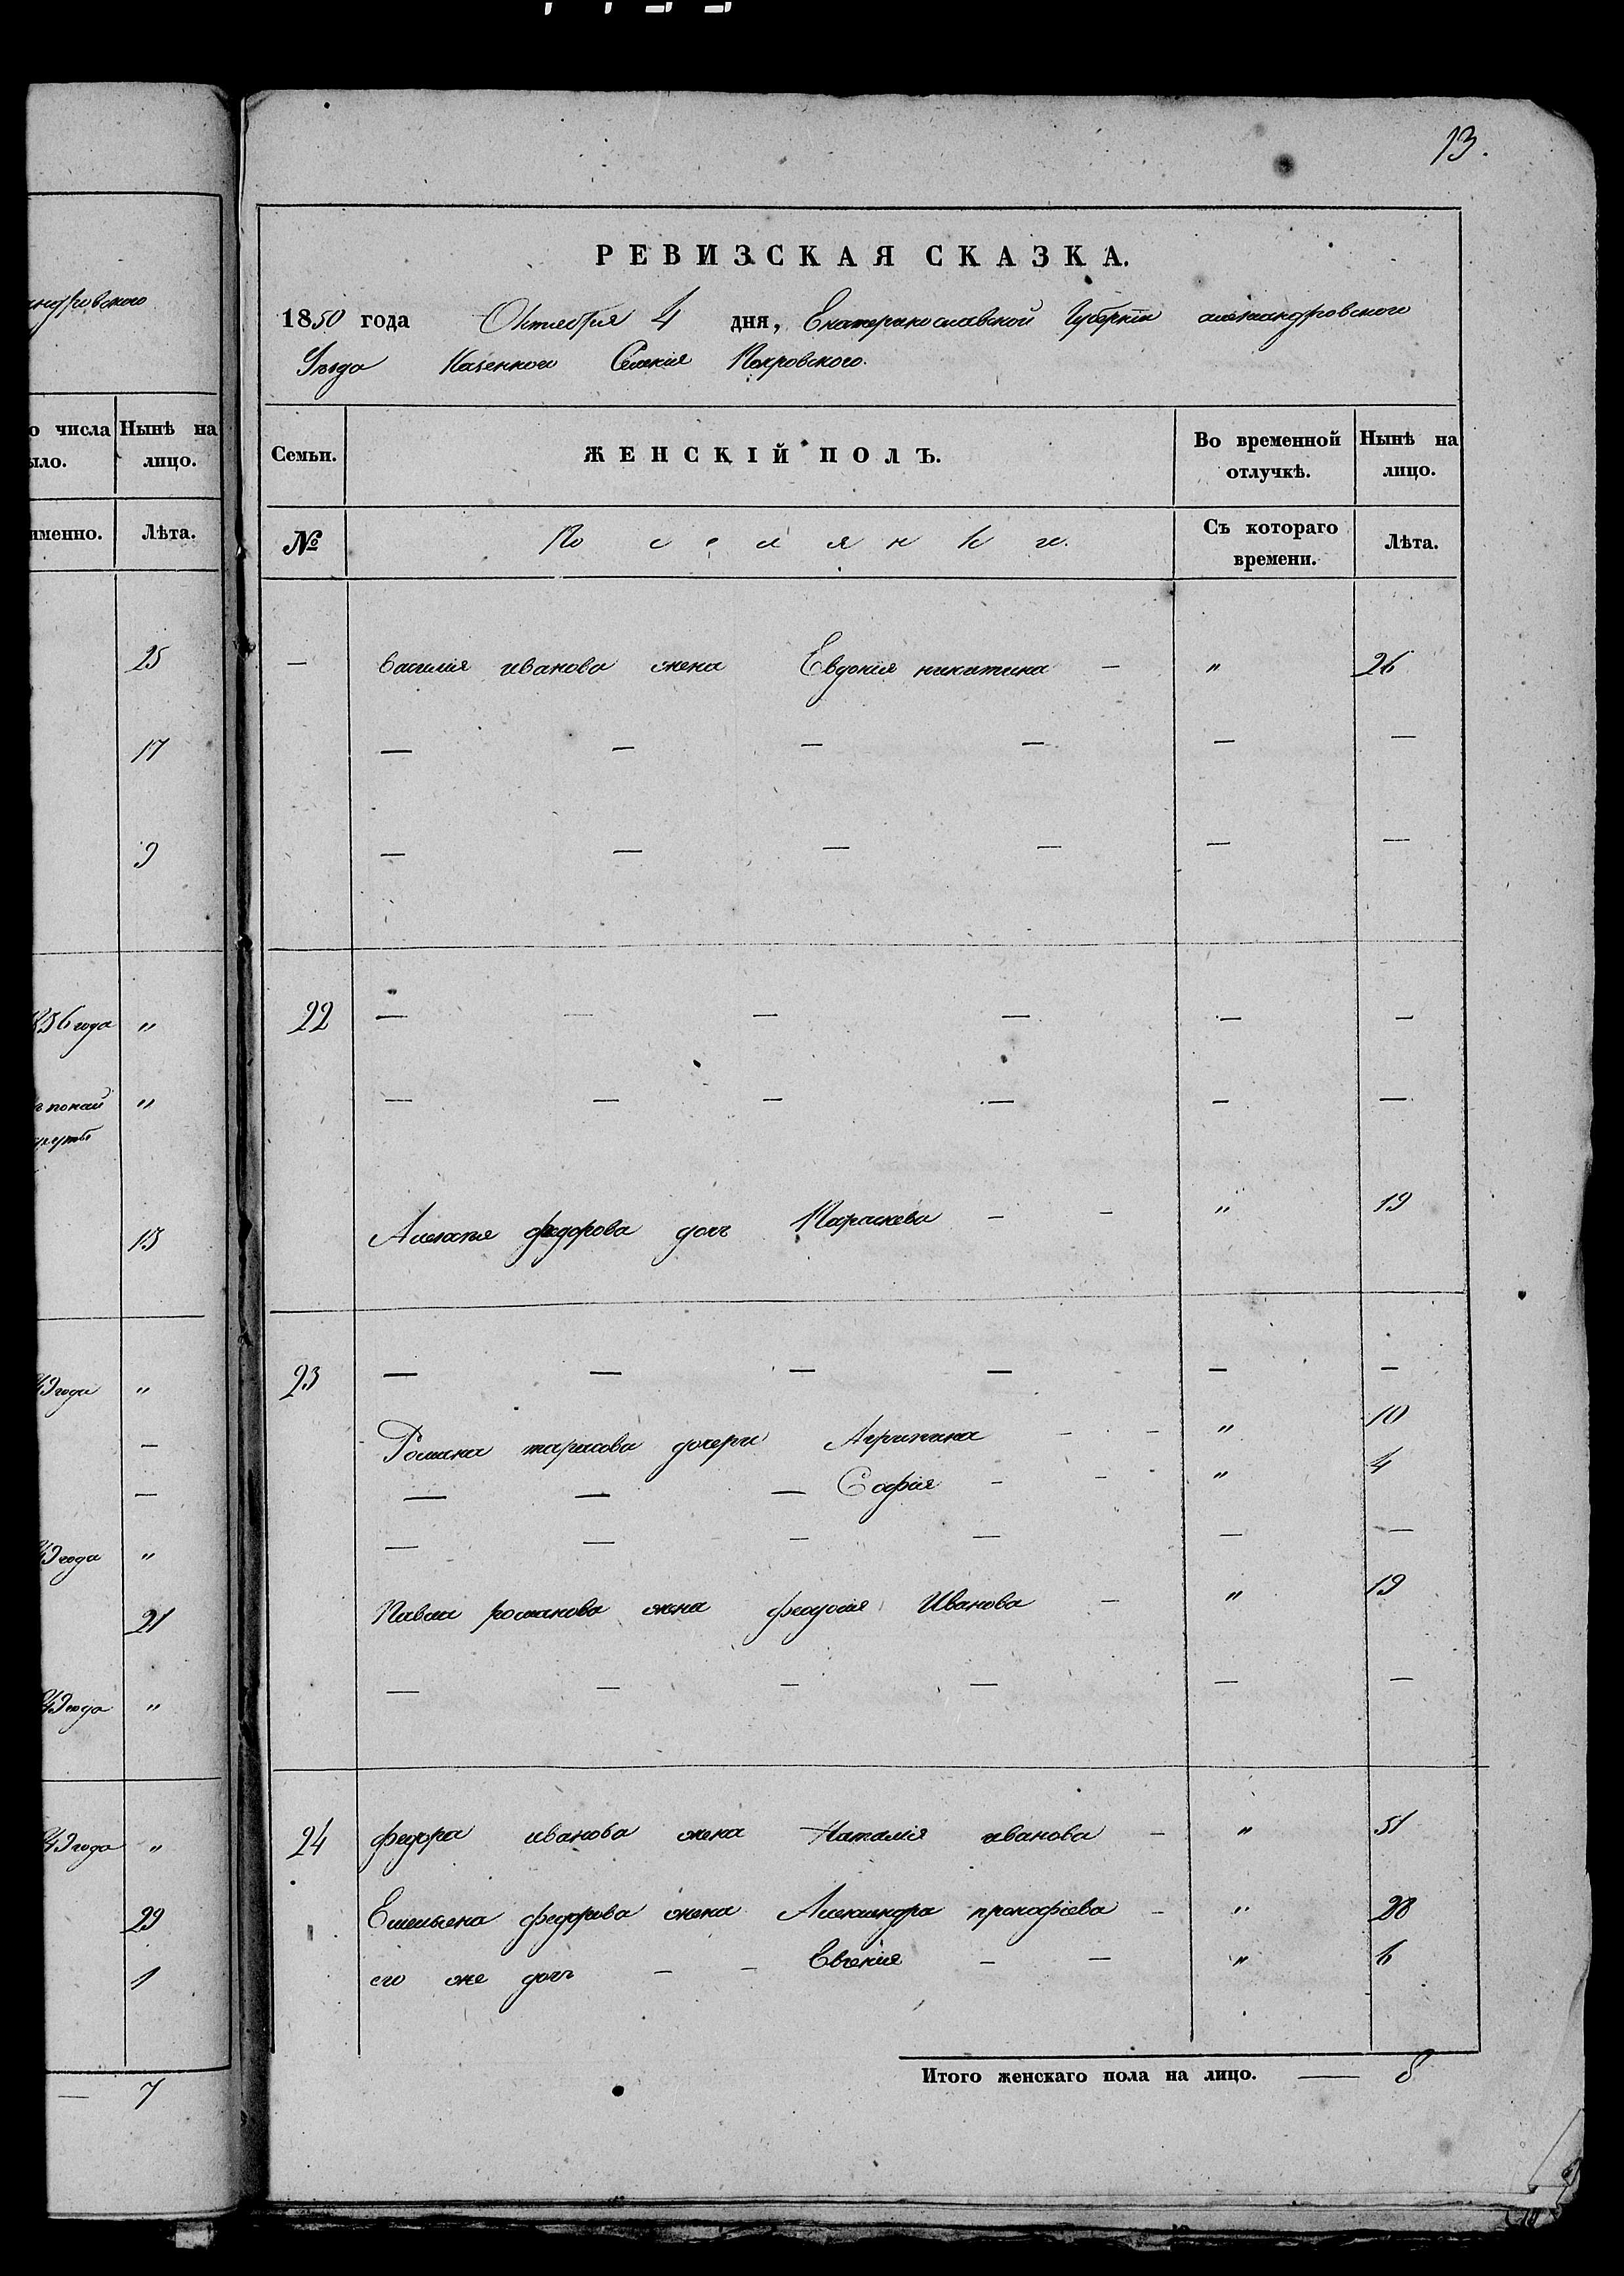 андровского
о числа Нынѣ на
ыло. лицо.
именно. Лѣта.
25
17
9
1836 года "
"
13
49 года "
—
—
49 года "
21
49 года "
49 года "
29
1
— 7
13.
РЕВИЗСКАЯ СКАЗКА.
1850 года Октября 4 дня, Екатеринославской Губерніи александровского
Уезда Казенного Селения Покровского.
Семьи. ЖЕНСКІЙ ПОЛЪ. Во временной отлучкѣ. Нынѣ на лицо.
№ Поселянки. Съ котораго времени. Лѣта.
— Василия иванова жена Евдокия никитина — " 26
— — — — — —
— — — — — —
22 — — — — — —
— — — — — —
федорова дочь Параскева — — " 19
23 — — — — — —
Романа тарасова дочери Агрипина — — " 10
— — — София — — " 4
— — — — — —
Павла романова жена феодосия Иванова — " 19
— — — — — —
24 федора иванова жена Наталія иванова — " 51
Емельяна федорова жена Александра прокофіева — " 28
его же дочь — — Евгения — — " 6
Итого женскаго пола на лицо. — 8